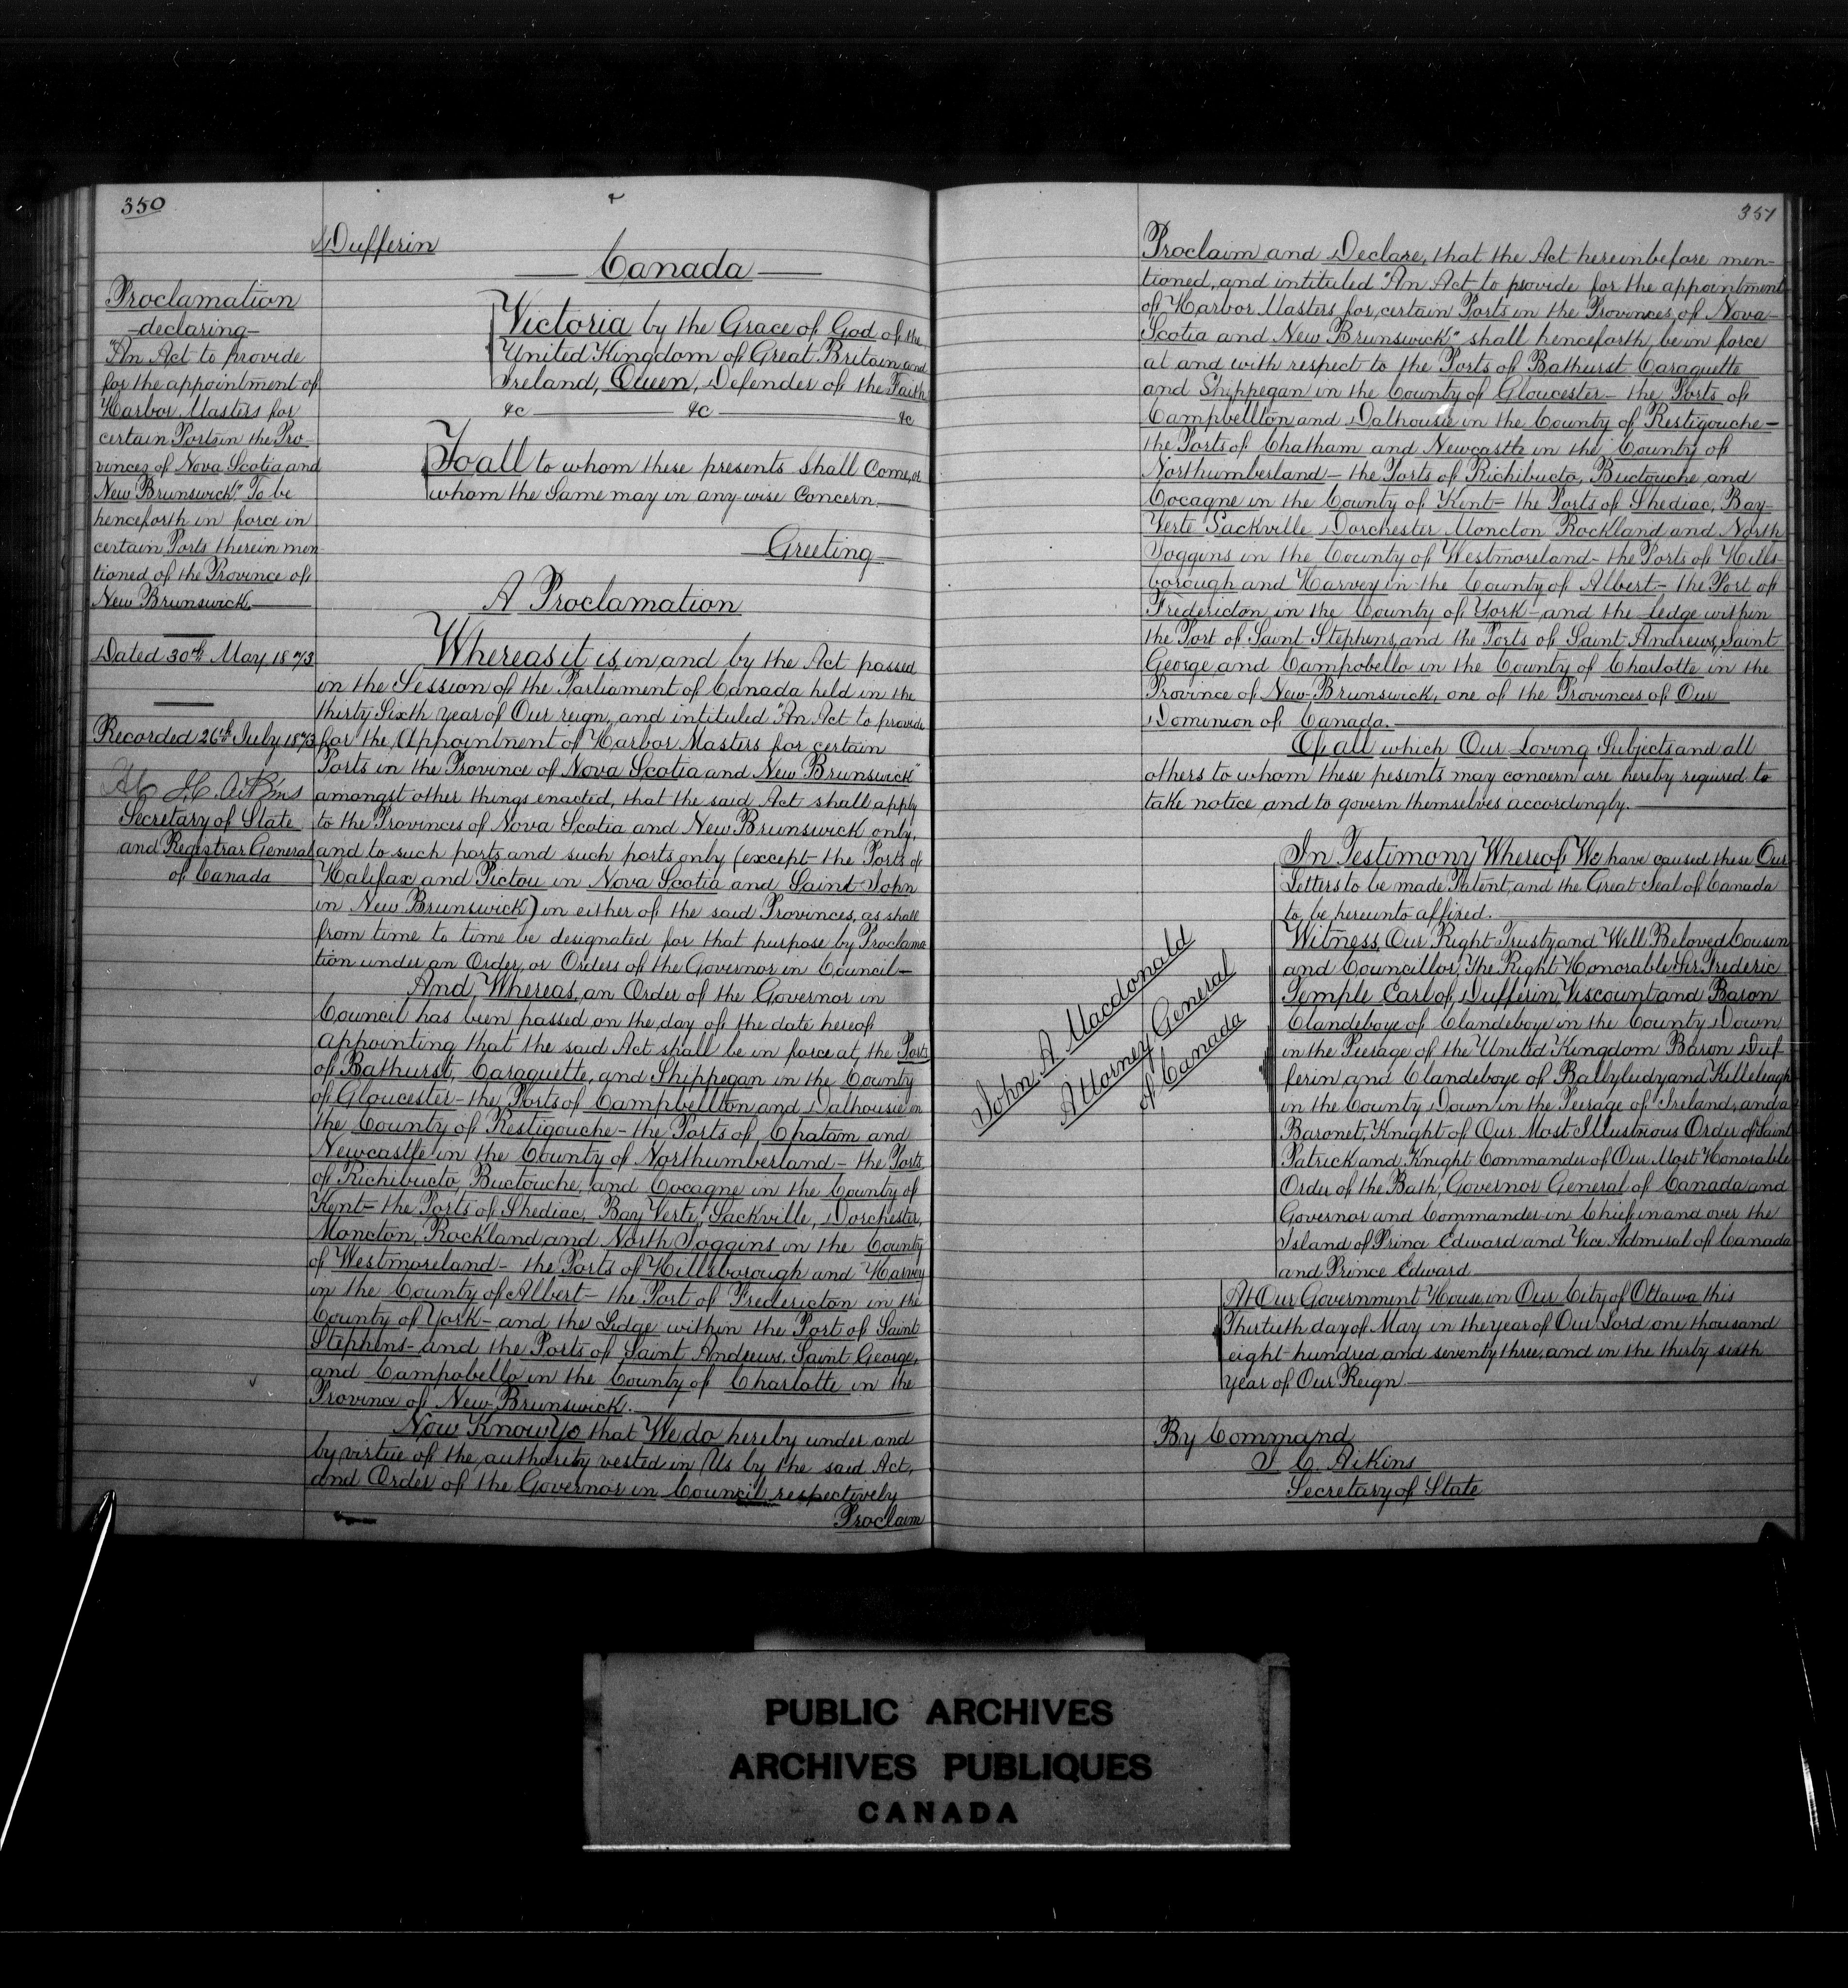 350
Dufferin
Canada
Proclamation
declaring
"An Act to provide
for the appointment of
Harbor Masters for
certain Ports in the Pro-
vinces of Nova Scotia and
New Brunswick" To be
henceforth in force in
certain Ports therein men-
tioned of the Province of
New Brunswick.
Dated 30th May 1873
Recorded 26th July 1873
J C Aikins
Secretary of State
and Registrar General
of Canada
Victoria by the Grace of God of the
United Kingdom of Great Britain and
Ireland, Queen, Defender of the Faith
&c &c &c
To all to whom these presents shall Come, or
whom the Same may in any wise Concern.
Greeting
A Proclamation
Whereas it is, in and by the Act passed
in the Session of the Parliament of Canada held in the
thirty Sixth year of Our reign, and intituled "An Act to provide
for the Appointment of Harbor Masters for certain
Ports in the Province of Nova Scotia and New Brunswick"
amongst other things enacted, that the said Act shall apply
to the Provinces of Nova Scotia and New Brunswick only,
and to such ports and such ports only (except the Ports of
Halifax and Pictou in Nova Scotia and Saint John
in New Brunswick) in either of the said Provinces, as shall
from time to time be designated for that purpose by Proclama
tion under an Order, or Orders of the Governor in Council—
And, Whereas, an Order of the Governor in
Council has been passed on the day of the date hereof
appointing that the said Act shall be in force at, the Ports
of Bathurst, Caraquette, and Shippegan in the County
of Gloucester – the Ports of Campbellton and Dalhousie in
the County of Restigouche – the Ports of Chatam and
Newcastle in the County of Northumberland – the Ports
of Richibucto, Buctouche, and Cocagne in the County of
Kent – the Ports of Shediac, Bay Verte, Sackville, Dorchester,
Moncton, Rockland and North Joggins in the County
of Westmoreland – the Ports of Hillsborough and Harvey
in the County of Albert – the Port of Fredericton in the
County of York – and the Ledge within the Port of Saint
Stephens – and the Ports of Saint Andrews, Saint George,
and Campobello in the County of Charlotte in the
Province of New Brunswick.
Now Know Ye that We do hereby under and
by virtue of the authority vested in Us by the said Act,
and Order of the Governor in Council respectively
Proclaim
351
Proclaim and Declare, that the Act hereinbefore men-
tioned, and intituled "An Act to provide for the appointment
of Harbor Masters for certain Ports in the Provinces of Nova
Scotia and New Brunswick" shall henceforth, be in force
at and with respect to the Ports of Bathurst Caraquette
and Shippegan in the County of Gloucester – the Ports of
Campbellton and Dalhousie in the County of Restigouche –
the Ports of Chatham and Newcastle in the County of
Northumberland – the Ports of Richibucto, Buctouche and
Cocagne in the County of Kent – the Ports of Shediac, Bay
Verte Sackville Dorchester Moncton Rockland and North
Joggins in the County of Westmoreland – the Ports of Hills-
borough and Harvey in the County of Albert – the Port of
Fredericton in the County of York – and the Ledge within
the Port of Saint Stephens, and the Ports of Saint Andrews, Saint
George and Campobello in the County of Charlotte in the
Province of New Brunswick, one of the Provinces of Our
Dominion of Canada.
Of all which Our Loving Subjects and all
others to whom these pesents may concern are hereby required to
take notice and to govern themselves accordingly.
In Testimony Whereof, We have caused these Our
Letters to be made Patent, and the Great Seal of Canada
to be hereunto affixed.
Witness, Our Right Trusty and Well Beloved Cousin
and Councillor, The Right Honorable Sir Frederic
Temple Earl of, Dufferin, Viscount and Baron
Clandeboye of Clandeboye in the County Down
in the Peerage of the United Kingdom Baron Duf-
ferin and Clandeboye of Ballyleidy and Killeleagh
in the County Down in the Peerage of Ireland, and a
Baronet, Knight of Our Most Illustrious Order of Saint
Patrick and Knight Commander of Our Most Honorable
Order of the Bath, Governor General of Canada and
Governor and Commander in Chief in and over the
Island of Prince Edward and Vice Admiral of Canada
and Prince Edward
John A Macdonald
Attorney General
of Canada
At Our Government House, in Our City of Ottawa this
Thirtieth day of May in the year of Our Lord one thousand
eight hundred and seventy three, and in the thirty sixth
year of Our Reign
By Command
J C. Aikins
Secretary of State
PUBLIC ARCHIVES
ARCHIVES PUBLIQUES
CANADA